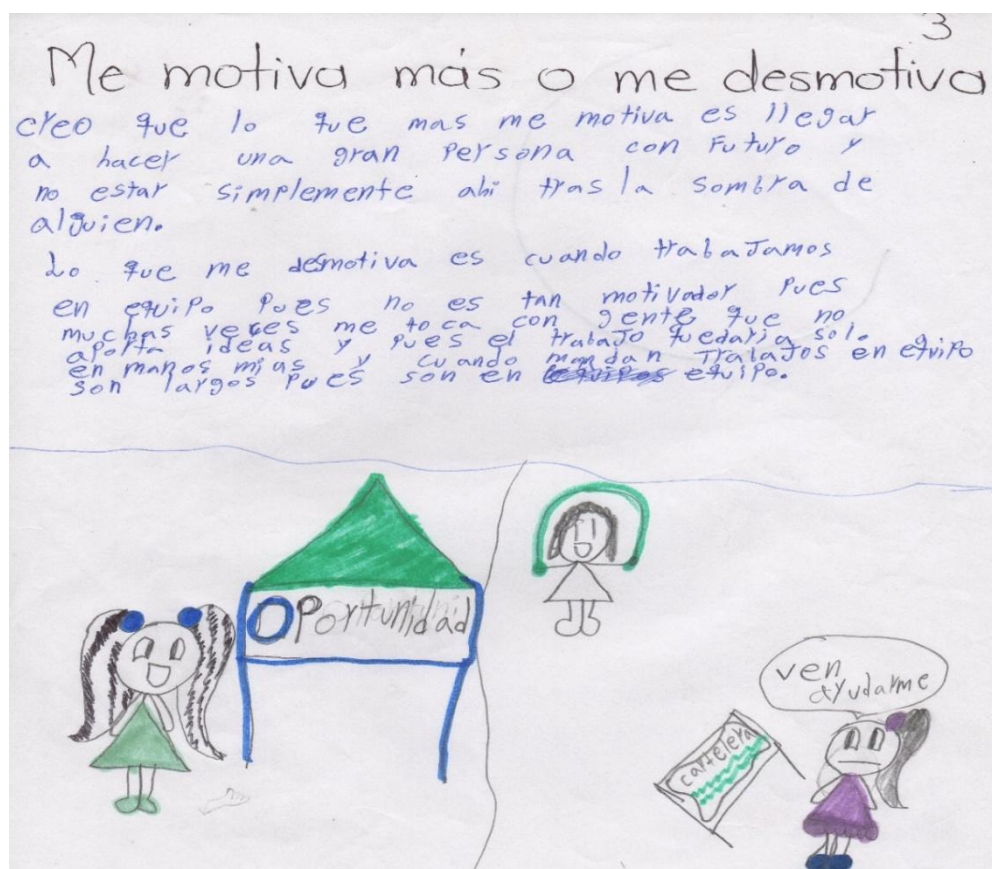 3
Me motiva más o me desmotiva
creo que lo que mas me motiva es llegar
a hacer una gran persona con futuro y
no estar simplemente ahi tras la sombra de
alguien.
Lo que me desmotiva es cuando trabajamos
en equipo pues no es tan motivador pues
muchas veces me toca con gente que no
aporta ideas y pues el trabajo quedaria solo
en manos mias y cuando mandan trabajos en equipo
son largos pues son en equipo.
Oportunidad
ven
ayudarme
cartelera